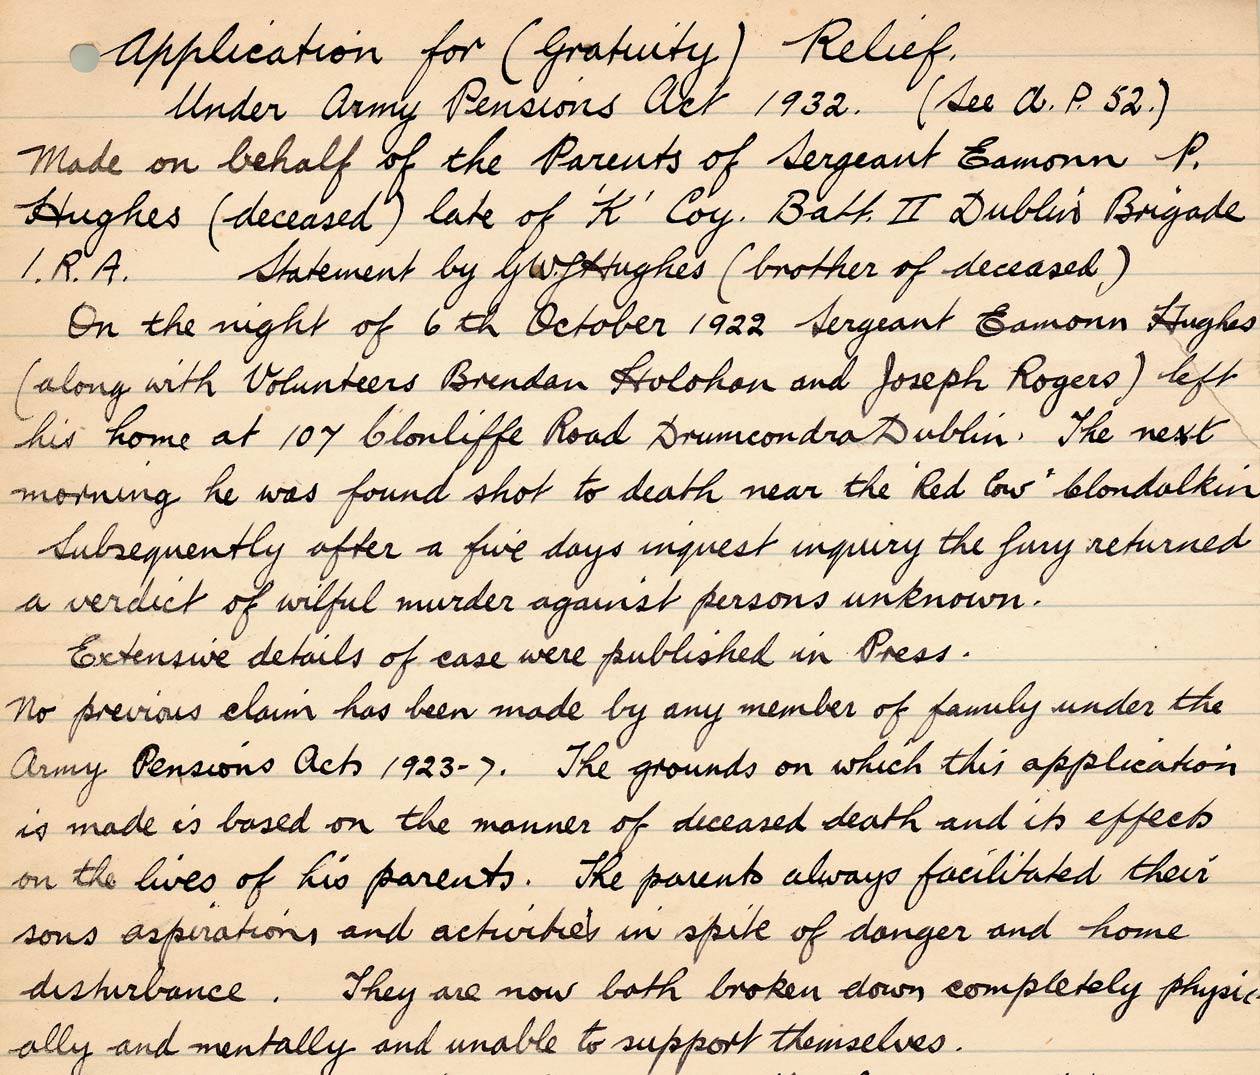 Application for (Gratuity) Relief.
Under Army Pensions Act 1932. (See A. P. 52.)
Made on behalf of the Parents of Sergeant Eamonn P.
Hughes (deceased) late of 'K' Coy. Batt. II Dublin Brigade
I.R.A. Statement by G.W.J. Hughes (brother of deceased)
On the night of 6th October 1922 Sergeant Eamonn Hughes
(along with Volunteers Brendan Holohan and Joseph Rogers) left
his home at 107 Clonliffe Road Drumcondra Dublin. The next
morning he was found shot to death near the "Red Cow" Clondalkin
Subsequently after a five days inquest inquiry the Jury returned
a verdict of wilful murder against persons unknown.
Extensive details of case were published in Press.
No previous claim has been made by any member of family under the
Army Pensions Acts 1923-7. The grounds on which this application
is made is based on the manner of deceased death and its effects
on the lives of his parents. The parents always facilitated their
sons aspirations and activities in spite of danger and home
disturbance. They are now both broken down completely physic-
ally and mentally and unable to support themselves.